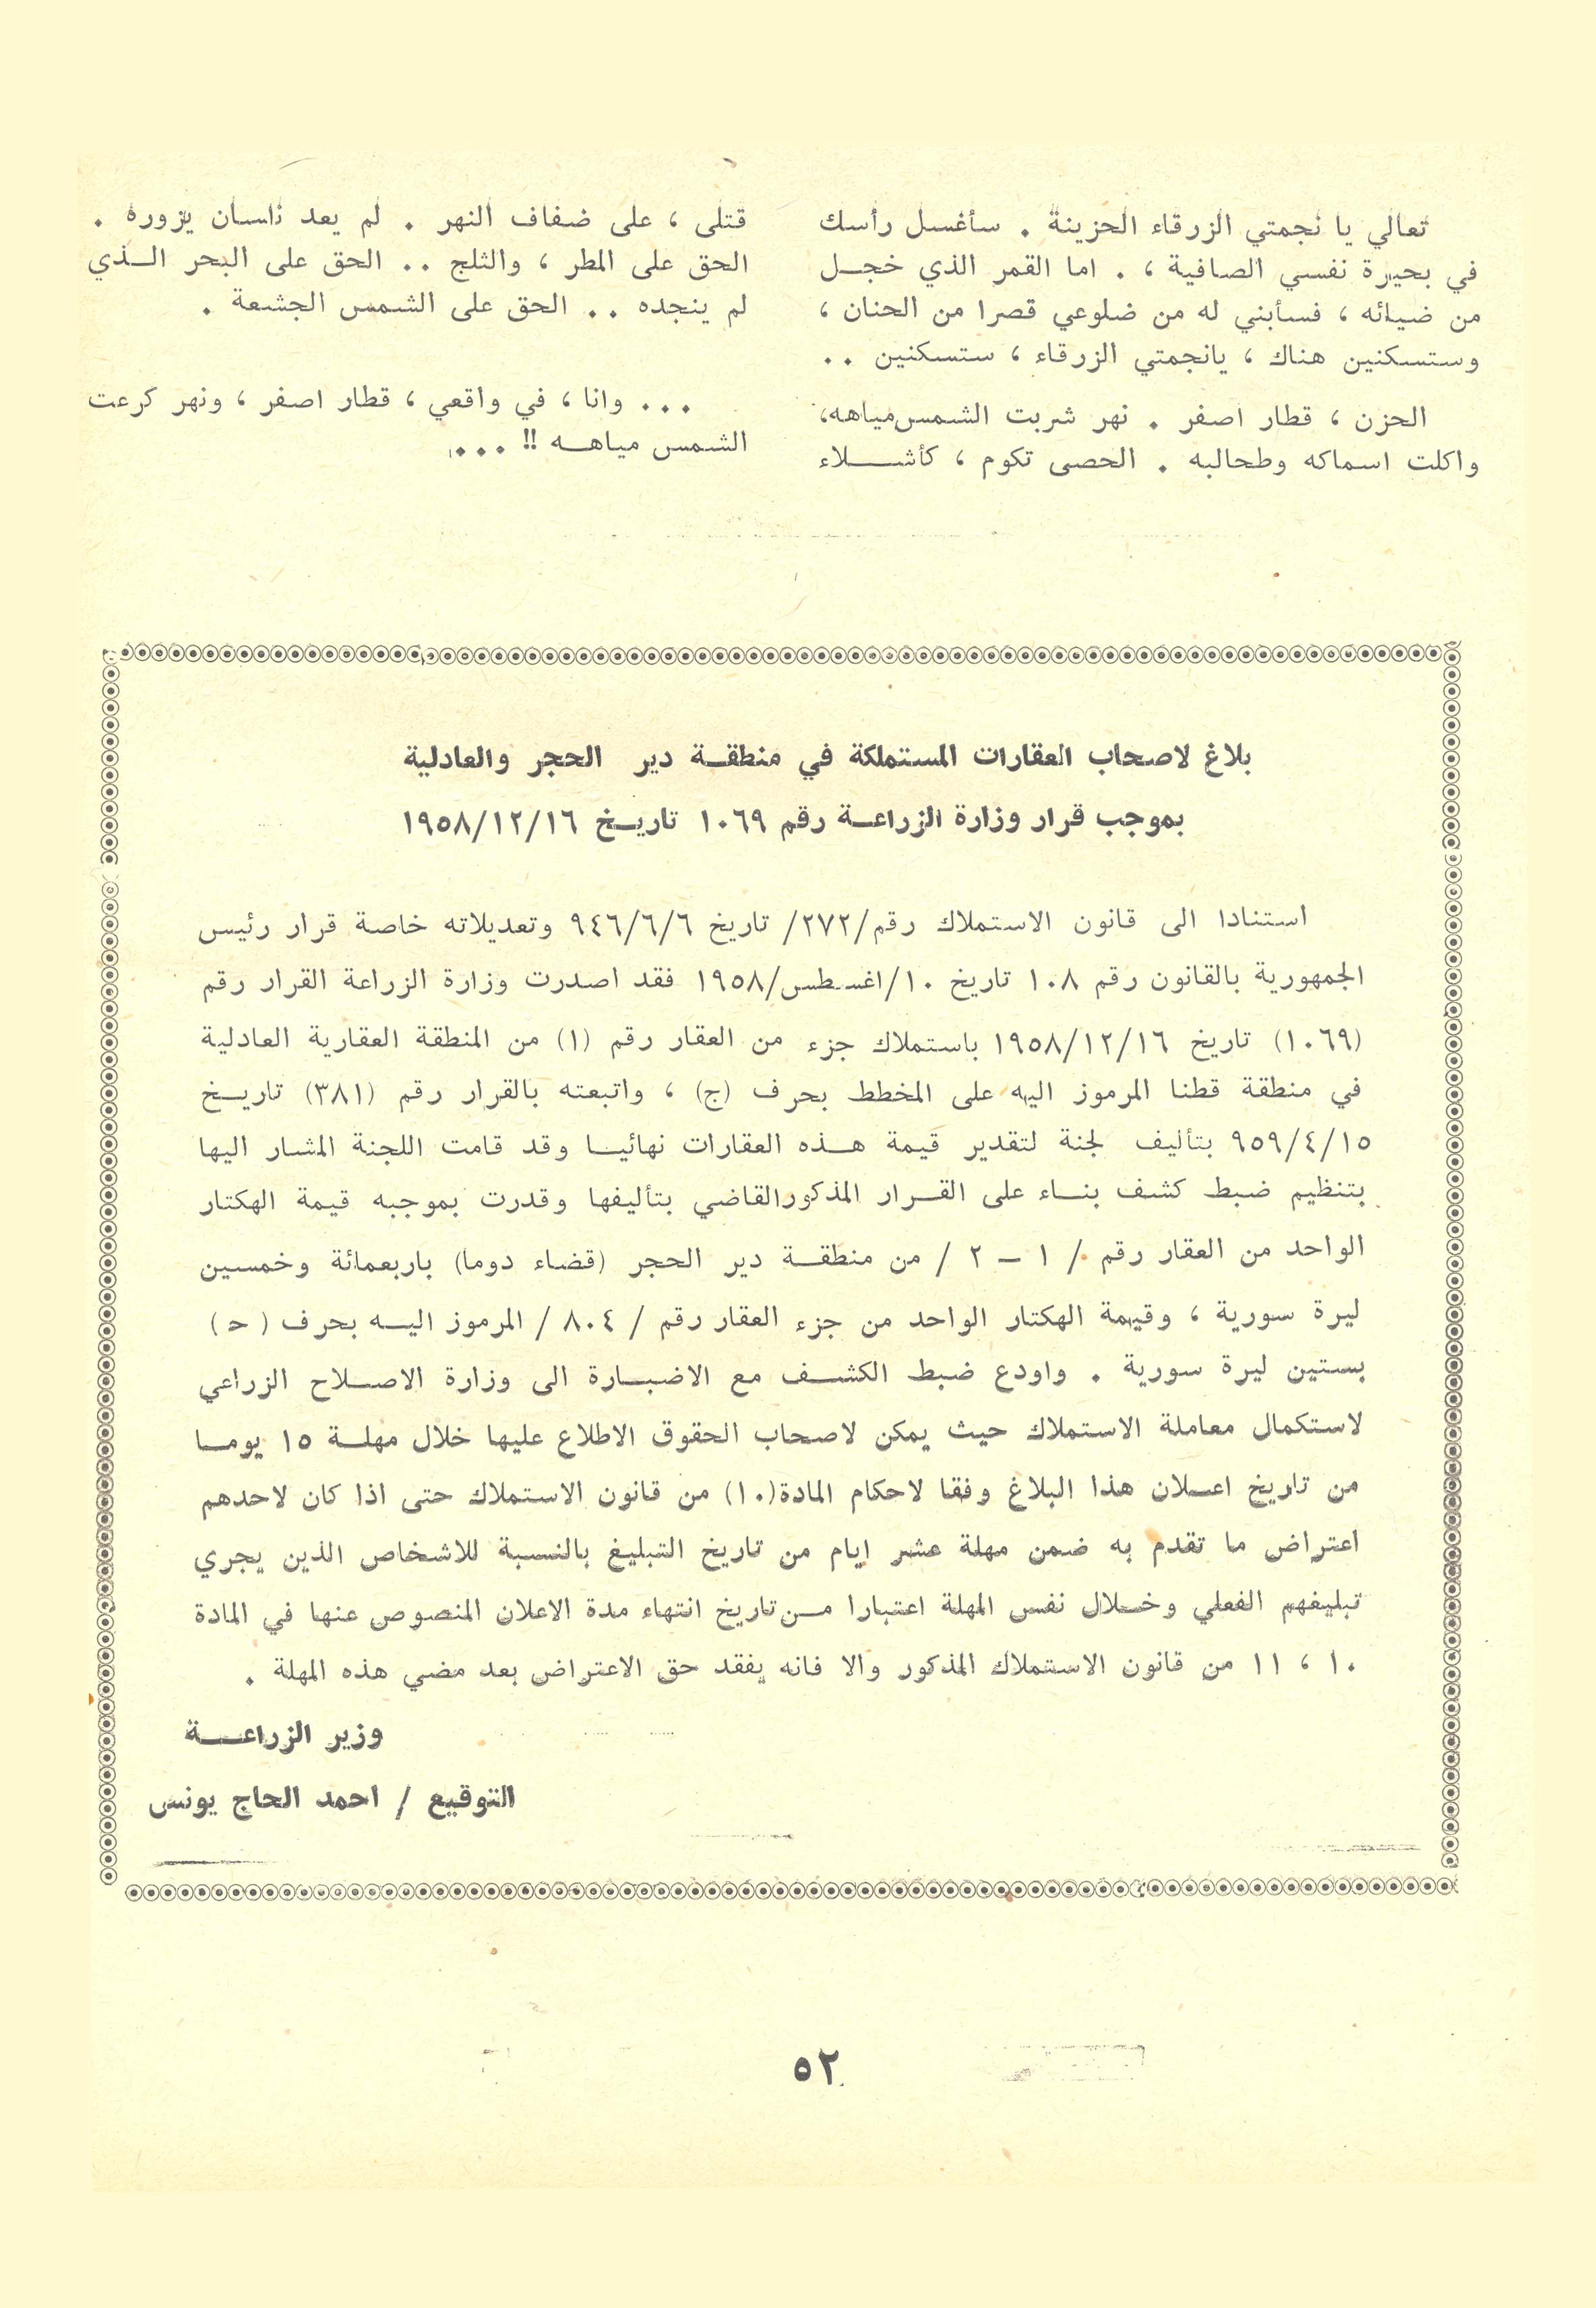 تعالي يا نجمتي الزرقاء الحزينة . سأغسل رأسك
في بحيرة نفسي الصافية ، . اما القمر الذي خجـل
من ضيائه ، فسأبني له من ضلوعي قصرا من الحنان ،
وستسكنين هناك ، يانجمتي الزرقاء ، ستسكنين . .
الحزن ، قطار اصفر . نهر شربت الشمس مياهه،
واكلت اسماكه وطحالبه . الحصى تكوم ، كأشــلاء
قتلى ، على ضفاف النهر . لم يعد ناسان يزوره .
الحق على المطر ، والثلج . . الحق على البحر الـذي
لم ينجده . . الحق على الشمس الجشعة .
. . . وانا ، في واقعي ، قطار اصفر ، ونهر كرعت
الشمس مياهـه !! . . .
بلاغ لاصحاب العقارات المستملكة في منطقـة دير الحجر والعادلية
بموجب قرار وزارة الزراعـة رقم ١٠٦٩ تاريـخ ١٩٥٨/١٢/١٦
استنادا الى قانون الاستملاك رقم/٢٧٢/ تاريخ ٩٤٦/٦/٦ وتعديلاته خاصة قرار رئيس
الجمهورية بالقانون رقم ١٠٨ تاريخ ١٠/اغسطس/١٩٥٨ فقد اصدرت وزارة الزراعة القرار رقم
(١٠٦٩) تاريخ ١٩٥٨/١٢/١٦ باستملاك جزء من العقار رقم (١) من المنطقة العقارية العادلية
في منطقة قطنا المرموز اليه على المخطط بحرف (ج) ، واتبعته بالقرار رقم (٣٨١) تاريـخ
٩٥٩/٤/١٥ بتأليف لجنة لتقدير قيمة هـذه العقارات نهائيـا وقد قامت اللجنة المشار اليها
بتنظيم ضبط كشف بنـاء على القـرار المذكورالقاضي بتأليفها وقدرت بموجبه قيمة الهكتار
الواحد من العقار رقم / ١ – ٢ / من منطقـة دير الحجر (قضاء دوما) باربعمائة وخمسين
ليرة سورية ، وقيمة الهكتار الواحد من جزء العقار رقم / ٨٠٤ / المرموز اليـه بحرف ( ح )
بستين ليرة سورية . واودع ضبط الكشـف مع الاضبـارة الى وزارة الاصـلاح الزراعي
لاستكمال معاملة الاستملاك حيث يمكن لاصحاب الحقوق الاطلاع عليها خلال مهلـة ١٥ يومـا
من تاريخ اعـلان هذا البلاغ وفقا لاحكام المادة(١٠) من قانون الاستملاك حتى اذا كان لاحدهم
اعتراض ما تقدم به ضمن مهلة عشر ايام من تاريخ التبليغ بالنسبة للاشخاص الذين يجري
تبليفهم الفعلي وخـلال نفس المهلة اعتبارا مـن تاريخ انتهاء مدة الاعلان المنصوص عنها في المادة
١٠ ، ١١ من قانون الاستملاك المذكور والا فانه يفقد حق الاعتراض بعد مضي هذه المهلة .
وزير الزراعــة
التوقيع / احمد الحاج يونس
٥٢